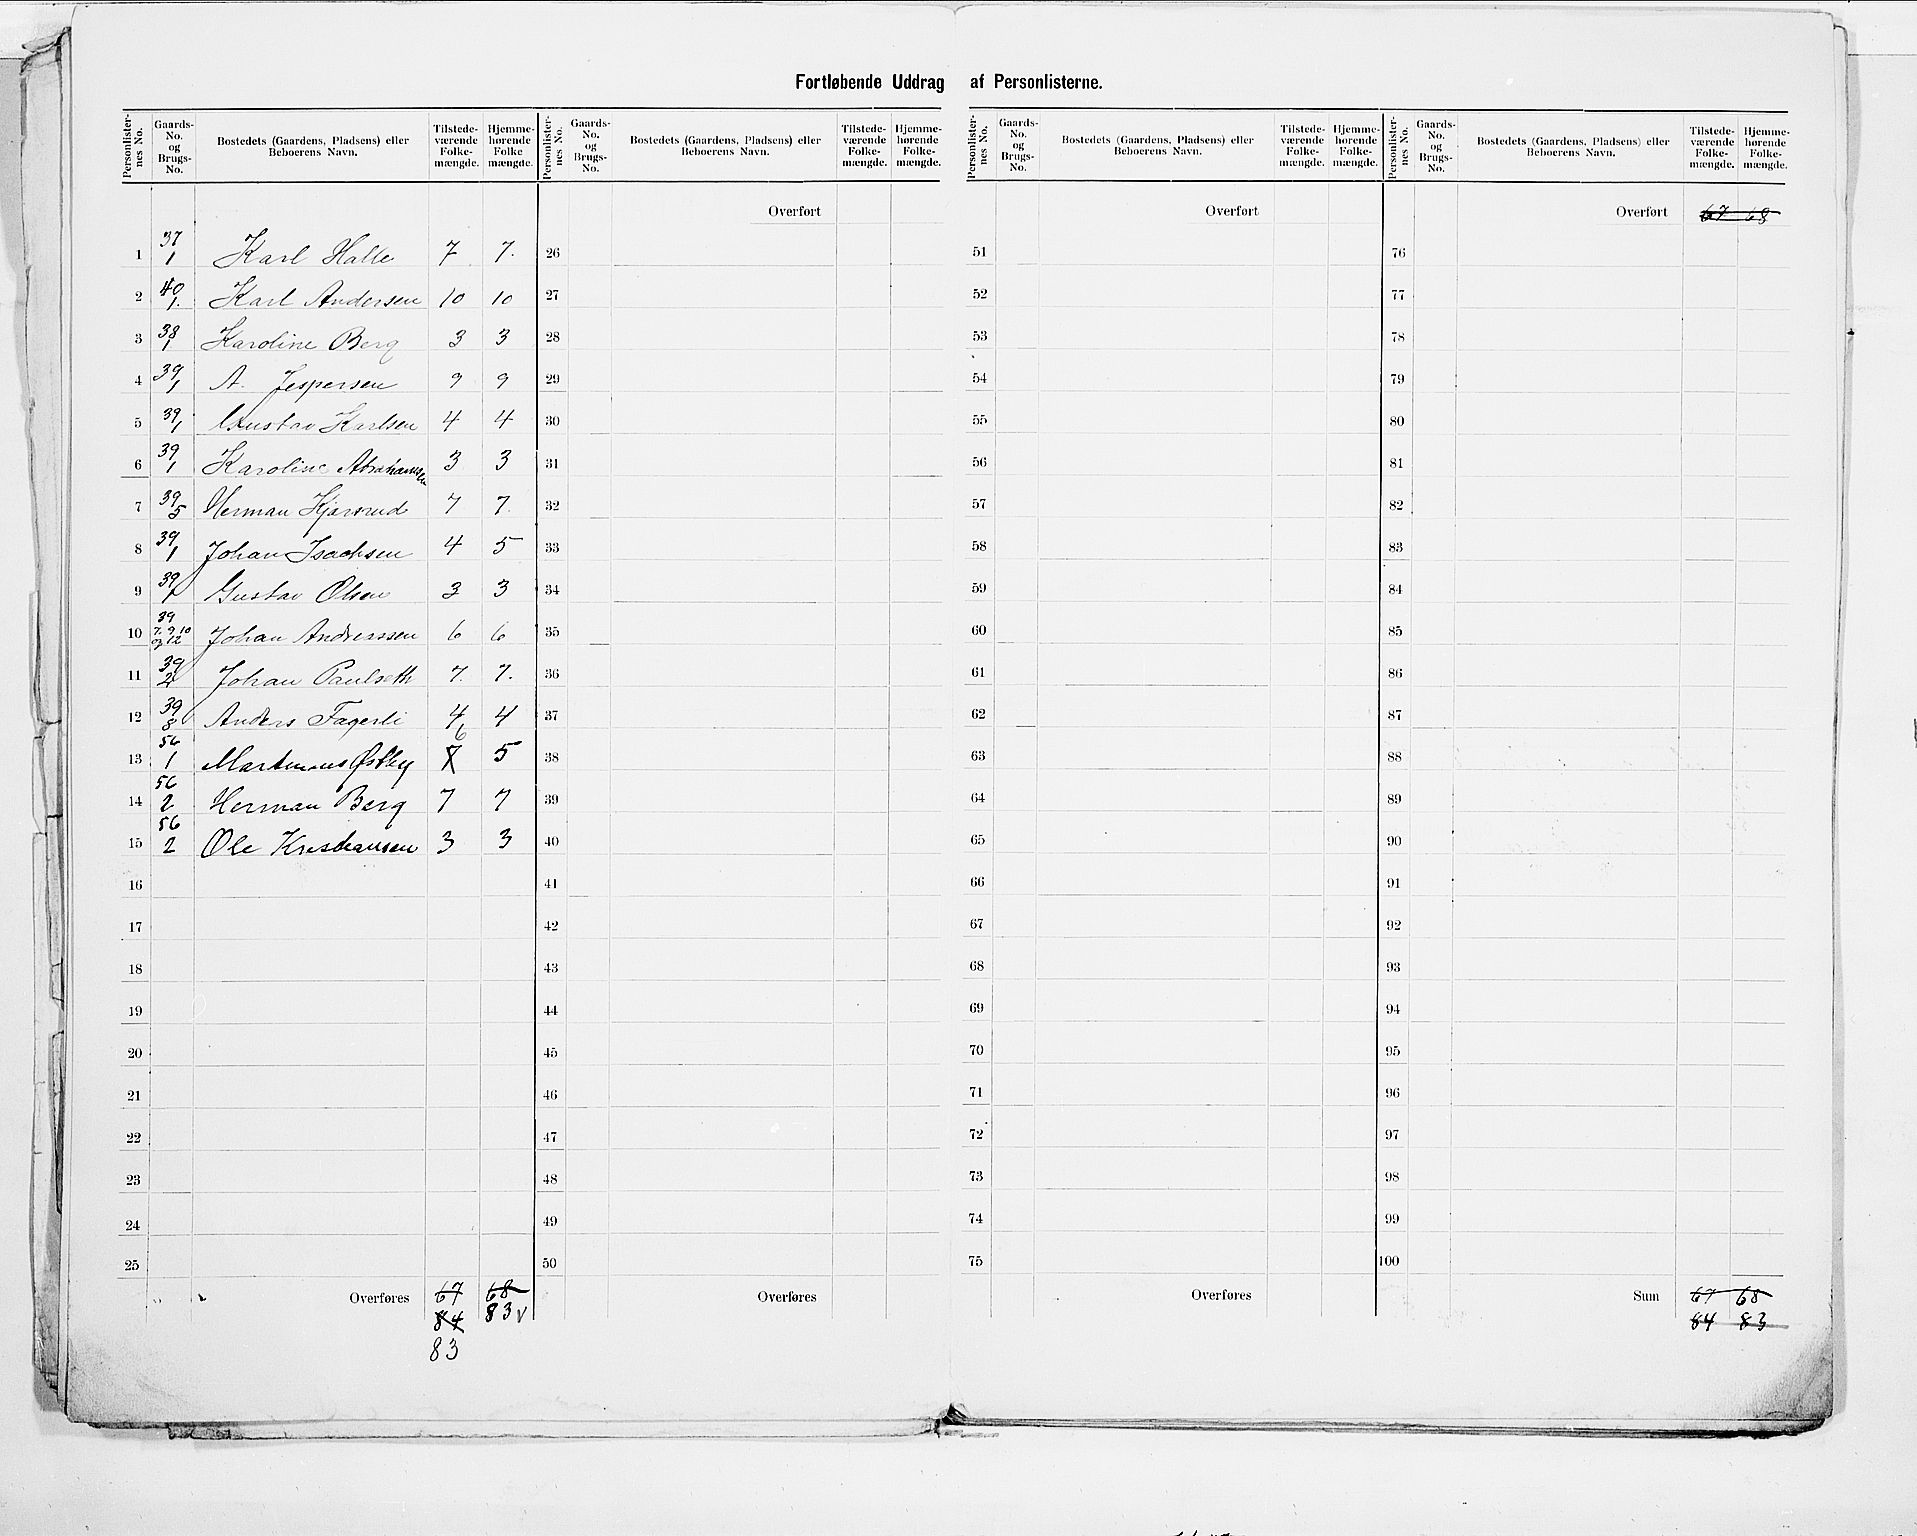 Fortløbende Uddrag af Personlisterne.
Personlisternes No. | Gaards-No. og Brugs-No. | Bostedets (Gaardens, Pladsens) eller Beboerens Navn. | Tilstedeværende Folkemængde. | Hjemmehørende Folkemængde.
Personlisternes No. | Gaards-No. og Brugs-No. | Bostedets (Gaardens, Pladsens) eller Beboerens Navn. | Tilstedeværende Folkemængde. | Hjemmehørende Folkemængde.
Personlisternes No. | Gaards-No. og Brugs-No. | Bostedets (Gaardens, Pladsens) eller Beboerens Navn. | Tilstedeværende Folkemængde. | Hjemmehørende Folkemængde.
Personlisternes No. | Gaards-No. og Brugs-No. | Bostedets (Gaardens, Pladsens) eller Beboerens Navn. | Tilstedeværende Folkemængde. | Hjemmehørende Folkemængde.
Overført Overført Overført 67 68
1 37/1 Karl Halle 7 7. 26 51 76
2 40/1. Karl Andersen 10 10 27 52 77
3 38/1 Karoline Berg 3 3 28 53 78
4 39/1 A. Jespersen 9 9 29 54 79
5 39/1 Gustav Karlsen 4 4 30 55 80
6 39/1 Karoline Abrahamsen 3 3 31 56 81
7 39/5 Herman Kjærrud 7 7. 32 57 82
8 39/1 Johan Isachsen 4 5 33 58 83
9 39/1 Gustav Olsen 3 3 34 59 84
10 39/7, 9, 10 og 12 Johan Andreassen 6 6 35 60 85
11 39/2 Johan Paulseth 7. 7. 36 61 86
12 39/8 Anders Fagerli 4 4 37 62 87
13 56/1 Martinius Østby 7 6 5 38 63 88
14 56/2 Herman Berg 7 7 39 64 89
15 56/2 Ole Kristiansen 3 3 40 65 90
16 41 66 91
17 42 67 92
18 43 68 93
19 44 69 94
20 45 70 95
21 46 71 96
22 47 72 97
23 48 73 98
24 49 74 99
25 50 75 100
Overføres 67 68 Overføres Overføres Sum 67 68
84 83 v 84 83
83